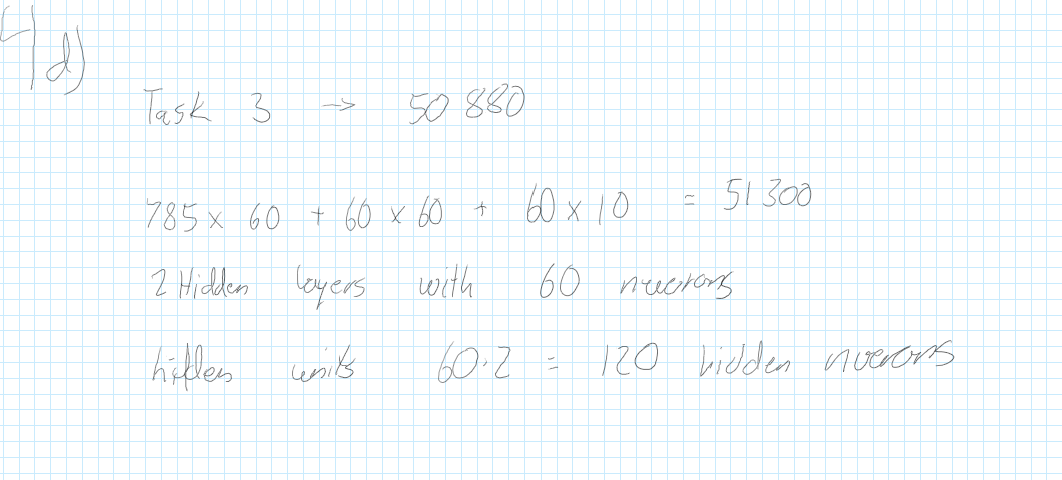 4 d)
Task 3 → 50 880
785 x 60 + 60 x 60 + 60 x 10 = 51 300
2 Hidden layers with 60 nuerons
hidden units 60·2 = 120 hidden nuerons